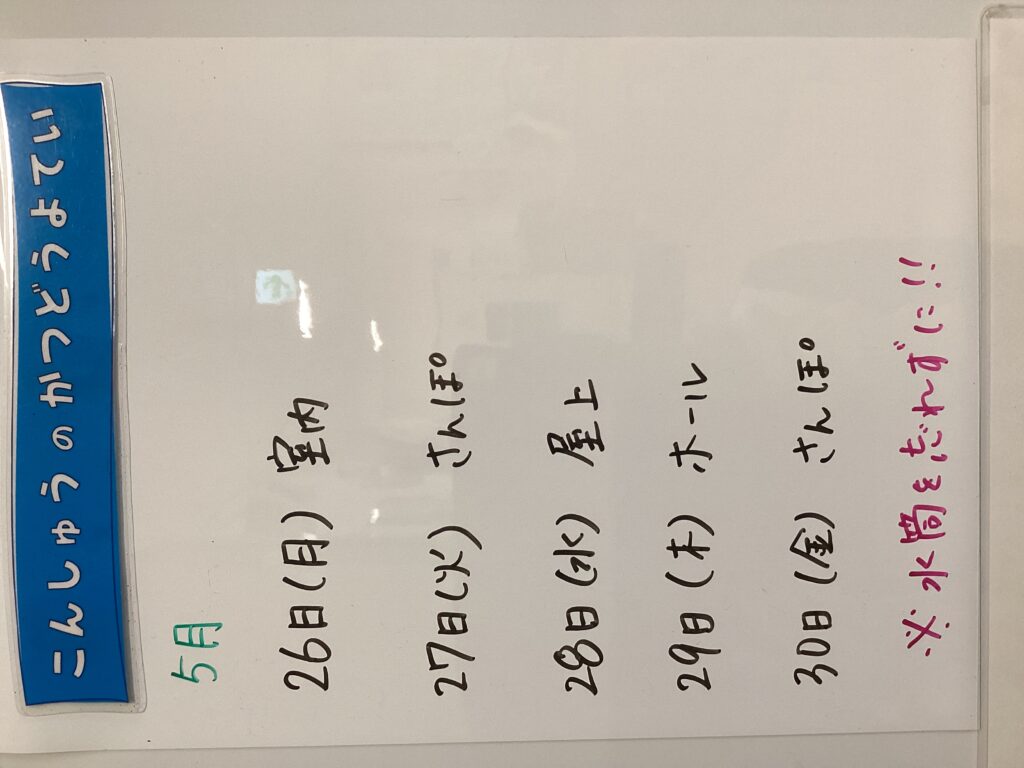 こんしゅうのかつどうよてい
5月
26日(月) 室内
27日(火) さんぽ
28日(水) 屋上
29日(木) ホール
30日(金) さんぽ
※水筒を忘れずに!!